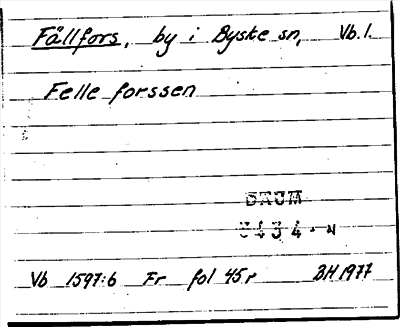 Fällfors, by i Byske sn, Vb. l.
Felle forssen
DAUM
3434 · N
Vb 1597:6 Fr fol 45r BH 1977